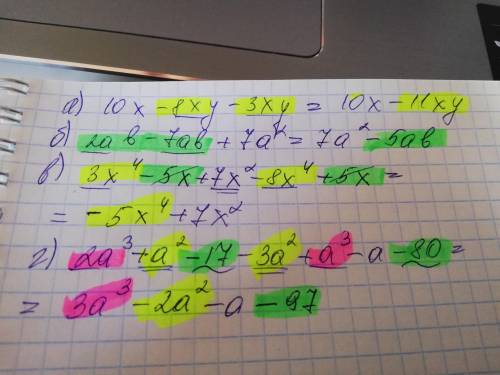 а) 10x - 8xy - 3xy = 10x - 11xy
б) 2ab - 7ab + 7a² = 7a² - 5ab
в) 3x⁴ - 5x + 7x² - 8x⁴ + 5x =
= - 5x⁴ + 7x²
г) 2a³ + a² - 17 - 3a² + a³ - a - 80 =
= 3a³ - 2a² - a - 97